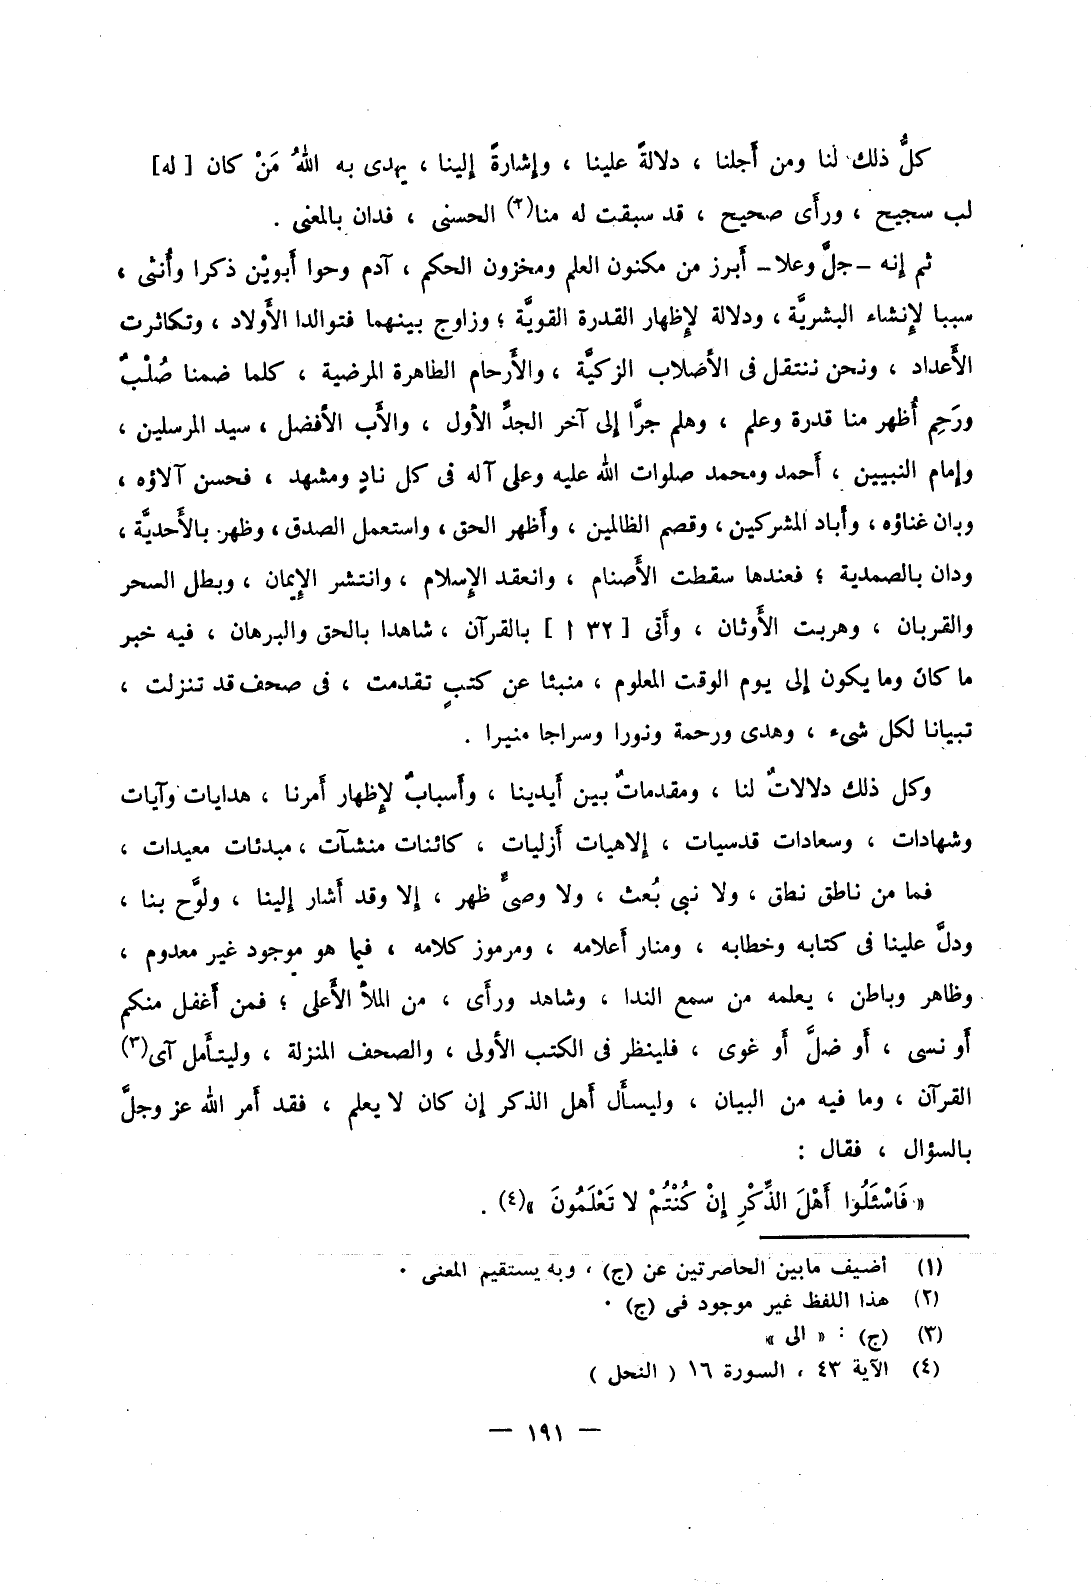 كلُّ ذلك لنا ومن أَجلنا ، دلالةً علينا ، وإشارةً إلينا ، يهدى به اللهُ مَنْ كان [ له]
لب سجيح ، ورأَى صحيح ، قد سبقت له منا(٢) الحسنى ، فدان بالمعنى .
ثم إنه –جلَّ وعلا– أَبرز من مكنون العلم ومخزون الحكم ، آدم وحوا أَبويْن ذكرا وأُنثى ،
سببا لإِنشاء البشريَّة ، ودلالة لإِظهار القدرة القويَّة ؛ وزاوج بينهما فتوالدا الأَولاد ، وتكاثرت
الأَعداد ، ونحن ننتقل فى الأَصلاب الزكيَّة ، والأَرحام الطاهرة المرضية ، كلما ضمنا صُلْبٌ
ورَحِم أُظهر منا قدرة وعلم ، وهلم جرًّا إلى آخر الجدِّ الأول ، والأَب الأفضل ، سيد المرسلين ،
وإمام النبيين ، أَحمد ومحمد صلوات الله عليه وعلى آله فى كل نادٍ ومشهد ، فحسن آلاؤه ،
وبان غناؤه ، وأباد المشركين ، وقصم الظالمين ، وأَظهر الحق ، واستعمل الصدق ، وظهر بالأَحديَّة ،
ودان بالصمدية ؛ فعندها سقطت الأَصنام ، وانعقد الإِسلام ، وانتشر الإِيمان ، وبطل السحر
والقربان ، وهربت الأَوثان ، وأَتى [ ٣٢ ا ] بالقرآن ، شاهدا بالحق والبرهان ، فيه خبر
ما كان وما يكون إلى يوم الوقت المعلوم ، منبئا عن كتبٍ تقدمت ، فى صحف قد تنزلت ،
تبيانا لكل شىء ، وهدى ورحمة ونورا وسراجا منيرا .
وكل ذلك دلالاتٌ لنا ، ومقدماتٌ بين أَيدينا ، وأَسبابٌ لإِظهار أَمرنا ، هدايات وآيات
وشهادات ، وسعادات قدسيات ، إلاهيات أَزليات ، كائنات منشآت ، مبدئات معيدات ،
فما من ناطق نطق ، ولا نبى بُعث ، ولا وصىٌّ ظهر ، إلا وقد أَشار إلينا ، ولوَّح بنا ،
ودلَّ علينا فى كتابه وخطابه ، ومنار أَعلامه ، ومرموز كلامه ، فيما هو موجود غير معدوم ،
وظاهر وباطن ، يعلمه من سمع الندا ، وشاهد ورأَى ، من الملأ الأَعلى ؛ فمن أَغفل منكم
أَو نسى ، أَو ضلَّ أَو غوى ، فلينظر فى الكتب الأولى ، والصحف المنزلة ، وليتأَمل آى(٣)
القرآن ، وما فيه من البيان ، وليسأَل أهل الذكر إن كان لا يعلم ، فقد أَمر الله عز وجلَّ
بالسؤال ، فقال :
« فَاسْئَلُوا أَهْلَ الذِّكْرِ إِنْ كُنْتُمْ لا تَعْلَمُونَ »(٤) .
(١) أضيف مابين الحاصرتين عن (ج) ، وبه يستقيم المعنى .
(٢) هذا اللفظ غير موجود فى (ج) .
(٣) (ج) : « الى »
(٤) الآية ٤٣ ، السورة ١٦ ( النحل )
— ١٩١ —